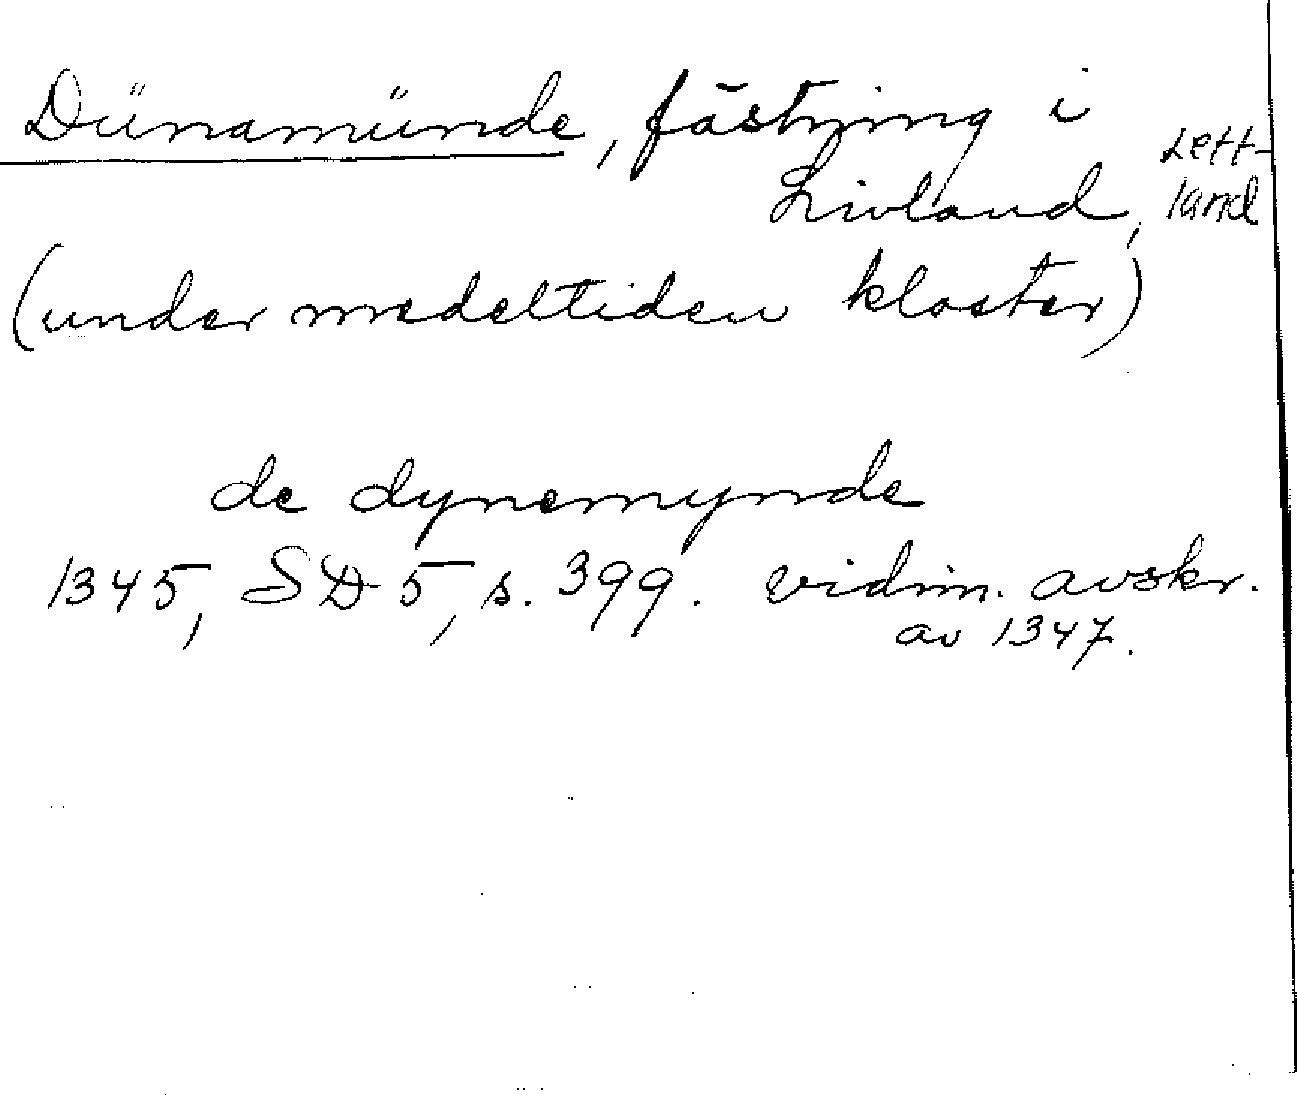 Dünamünde, fästning i
Livland, Lett-
land
(under medeltiden kloster)
de dynemynde
1345, SD 5, s. 399. vidim. avskr.
av 1347.